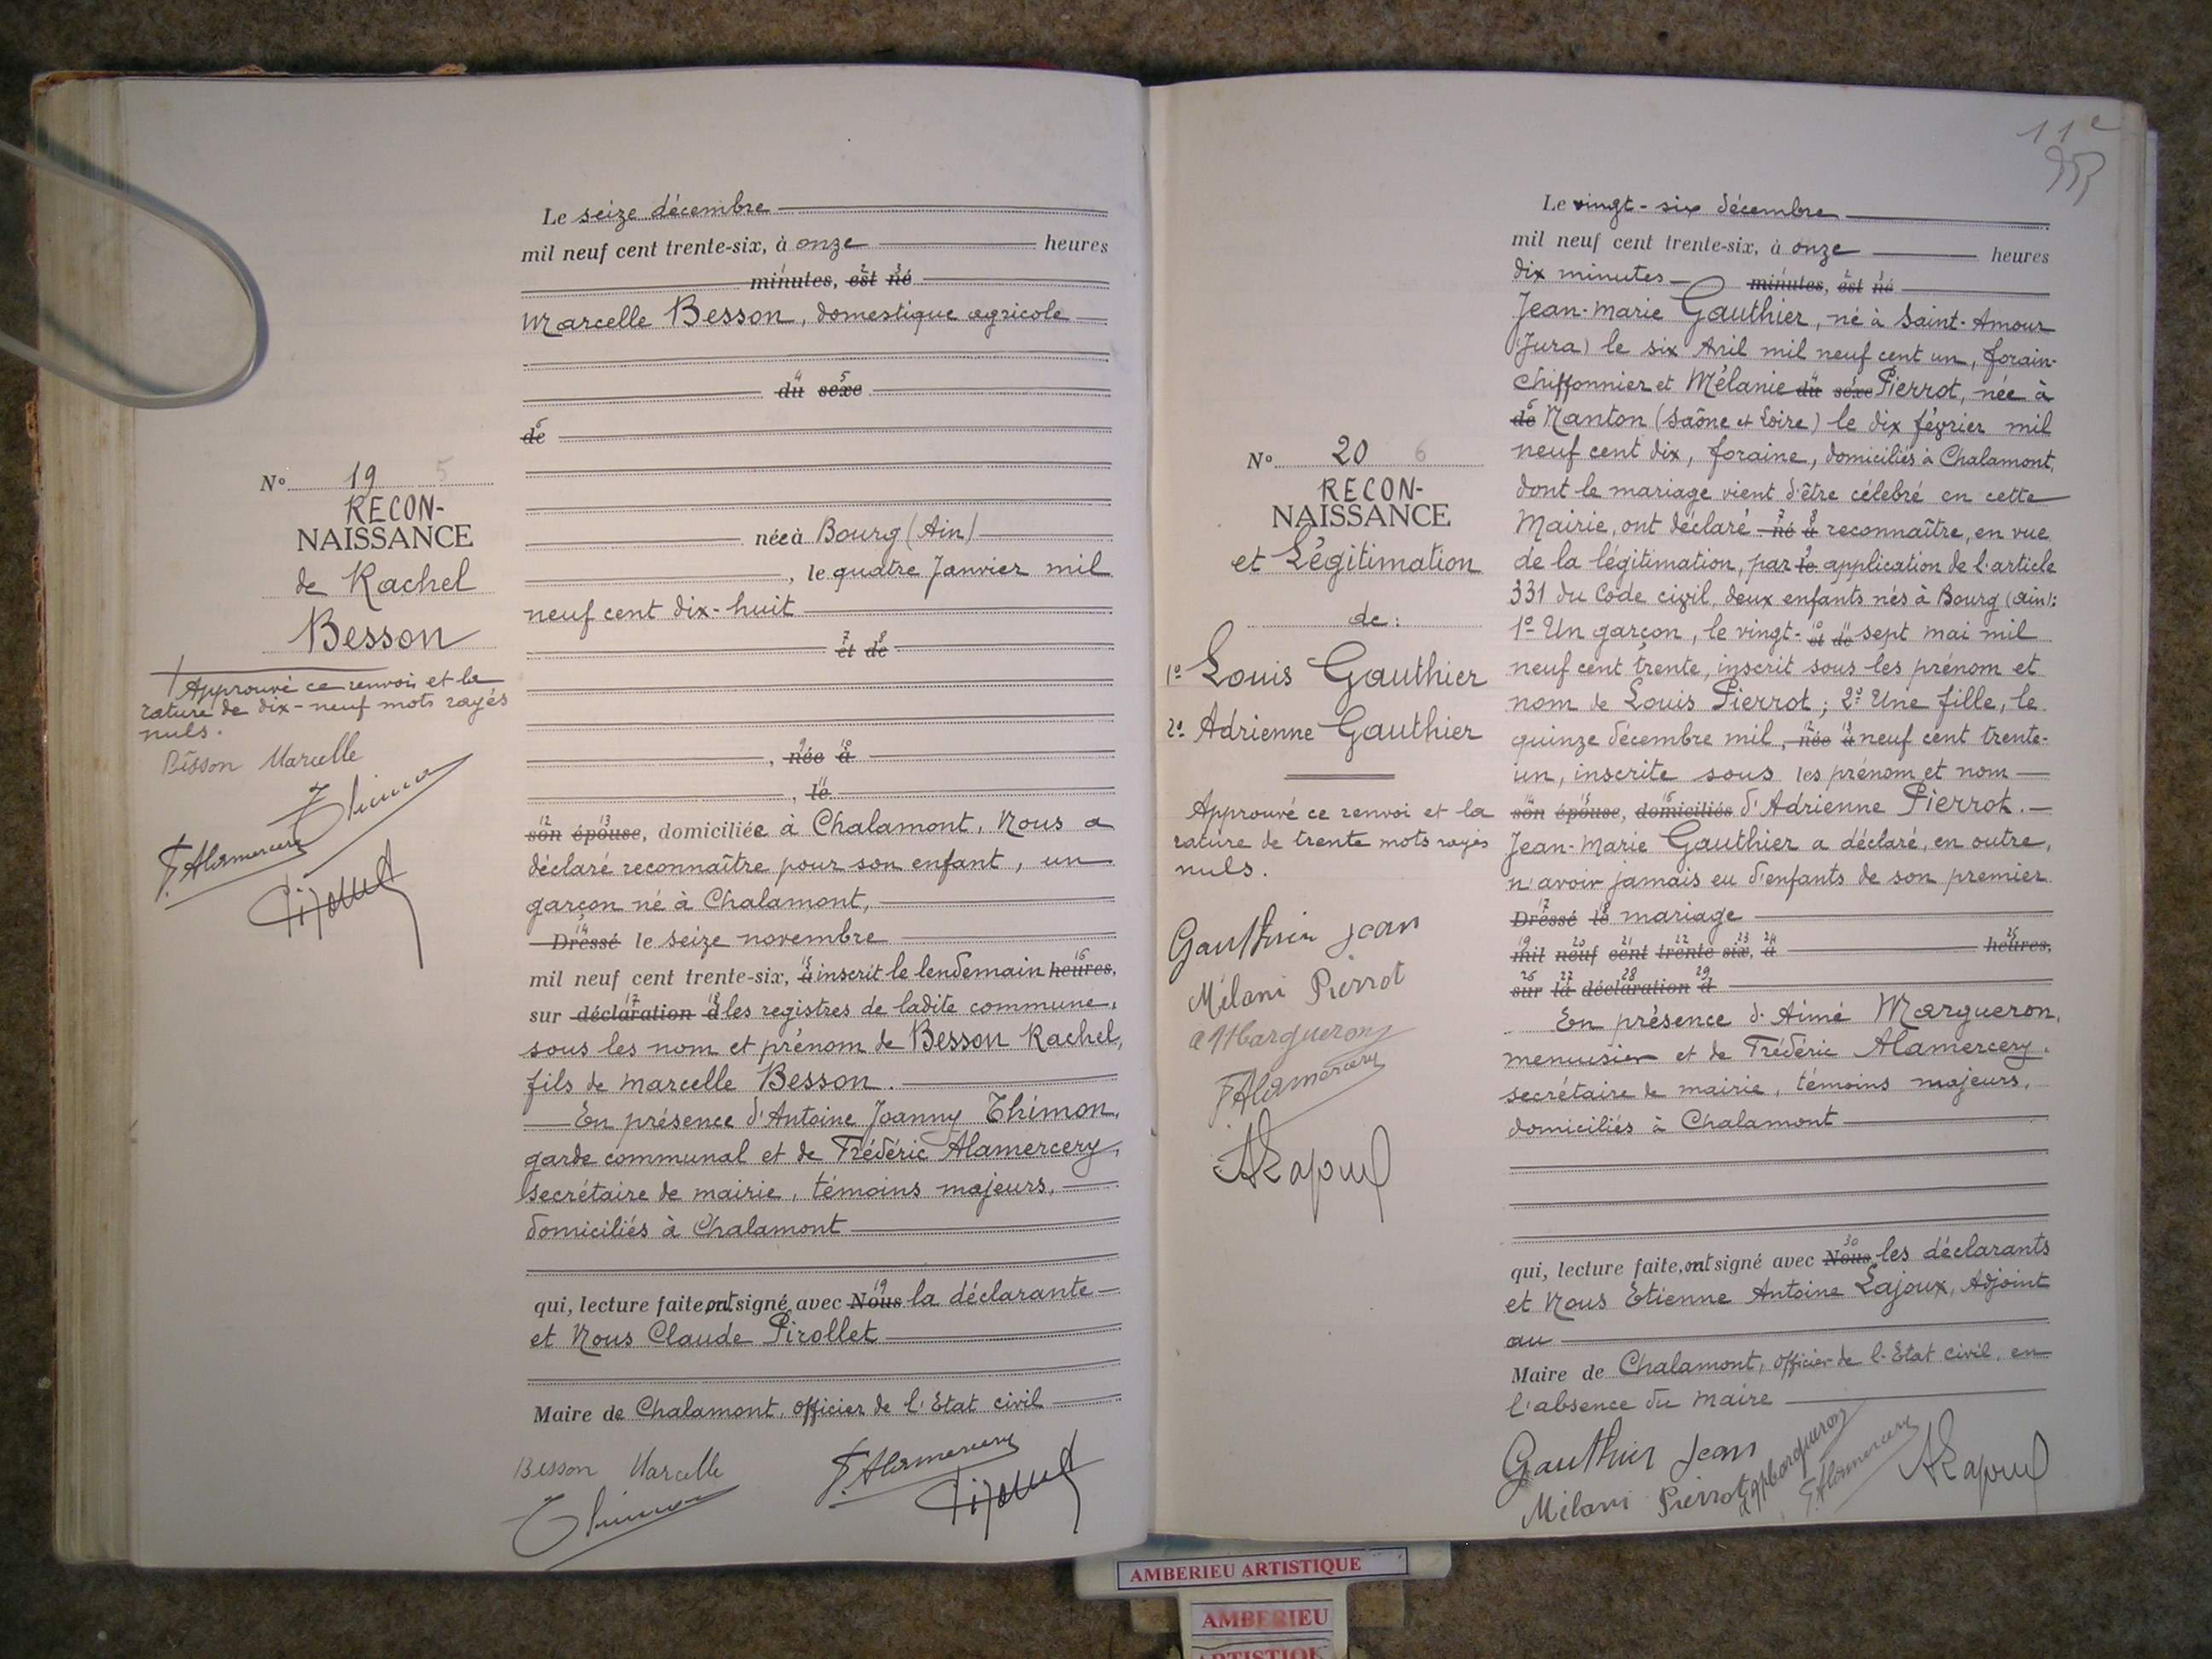 Le seize décembre
mil neuf cent trente-six, à onze heures
minutes, est né
Marcelle Besson, domestique agricole
du sexe
de
née à Bourg (Ain)
, le quatre Janvier mil
neuf cent dix-huit
et de
, née à
, le
son épouse, domiciliée à Chalamont, Nous a
déclaré reconnaître pour son enfant, un
garçon né à Chalamont,
Dressé le seize novembre
mil neuf cent trente-six, à inscrit le lendemain heures,
sur déclaration d les registres de ladite commune,
sous les nom et prénom de Besson Rachel,
fils de Marcelle Besson.
En présence d'Antoine Joanny Thimon,
garde communal et de Frédéric Alamercery,
secrétaire de mairie, témoins majeurs,
domiciliés à Chalamont
qui, lecture faite, ont signé avec Nous la déclarante
et Nous Claude Pirollet
Maire de Chalamont, officier de l'Etat civil
Besson Marcelle
F. Alamercery
Thimon
Nº 19 5
RECON-
NAISSANCE
de Rachel
Besson
Approuvé ce renvoi et la
rature de dix-neuf mots rayés
nuls.
Besson Marcelle
Thimon
F. Alamercery
11e
Le vingt-six décembre
mil neuf cent trente-six, à onze heures
dix minutes minutes, est né
Jean-Marie Gauthier, né à Saint-Amour
(Jura) le six Avril mil neuf cent un, forain-
chiffonnier et Mélanie du sexe Pierrot, née à
de Nanton (Saône et Loire) le dix février mil
neuf cent dix, foraine, domiciliés à Chalamont,
dont le mariage vient d'être célebré en cette
Mairie, ont déclaré né à reconnaître, en vue
de la légitimation, par le application de l'article
331 du Code civil, deux enfants nés à Bourg (Ain):
1º Un garçon, le vingt- et de sept mai mil
neuf cent trente, inscrit sous les prénom et
nom de Louis Pierrot; 2º Une fille, le
quinze décembre mil, née à neuf cent trente-
un, inscrite sous les prénom et nom
son épouse, domiciliés d'Adrienne Pierrot.
Jean-Marie Gauthier a déclaré, en outre,
n'avoir jamais eu d'enfants de son premier
Dressé le mariage
mil neuf cent trente six, à heures,
sur la déclaration d
En présence d'Aimé Margueron,
menuisier et de Frédéric Alamercery,
secrétaire de mairie, témoins majeurs,
domiciliés à Chalamont
qui, lecture faite, ont signé avec Nous les déclarants
et Nous Etienne Antoine Lajoux, Adjoint
au
Maire de Chalamont, officier de l'Etat civil, en
l'absence du Maire
Gauthier Jean
Mélani Pierrot
a Margueron
F. Alamercery
A Lajoux
Nº 20 6
RECON-
NAISSANCE
et Légitimation
de:
1º Louis Gauthier
2º Adrienne Gauthier
Approuvé ce renvoi et la
rature de trente mots rayés
nuls.
Gauthier Jean
Mélani Pierrot
a Margueron
F. Alamercery
A Lajoux
AMBERIEU ARTISTIQUE
AMBERIEU